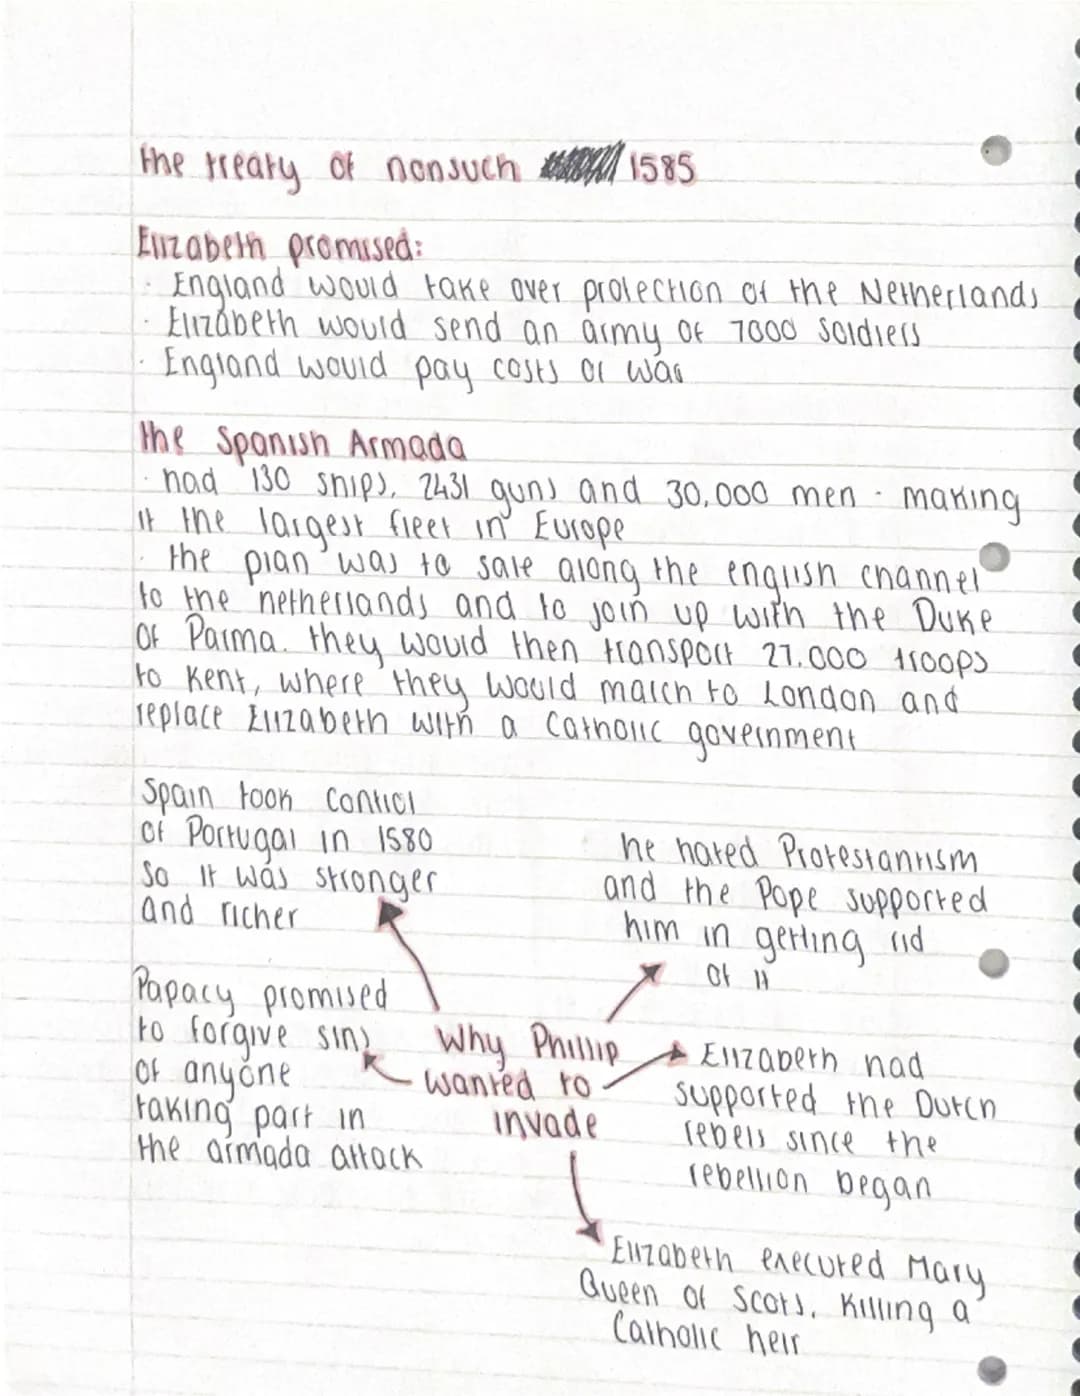 the treaty of nonsuch 1585
Elizabeth promised:
· England would take over protection of the Netherlands
· Elizabeth would send an army of 7000 soldiers
· England would pay costs of war
the Spanish Armada
· had 130 ships, 2431 guns and 30,000 men - making
it the largest fleet in Europe
· the plan was to sale along the english channel
to the netherlands and to join up with the Duke
of Parma. they would then transport 27.000 troops
to Kent, where they would march to London and
replace Elizabeth with a Catholic government
Spain took control
of Portugal in 1580
so it was stronger
and richer
he hated Protestantism
and the Pope supported
him in getting rid
of it
Papacy promised
to forgive sins
of anyone
taking part in
the armada attack
Why Phillip
wanted to
invade
Elizabeth had
supported the Dutch
rebels since the
rebellion began
Elizabeth executed Mary
Queen of Scots, killing a
Catholic heir